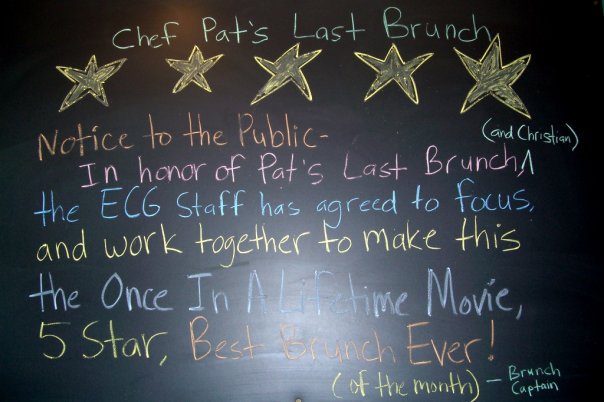 Chef Pat's Last Brunch
Notice to the Public-
(and Christian)
In honor of Pat's Last Brunch,
the ECG Staff has agreed to focus,
and work together to make this
the Once In A Lifetime Movie,
5 Star, Best Brunch Ever!
(of the month) - Brunch
Captain